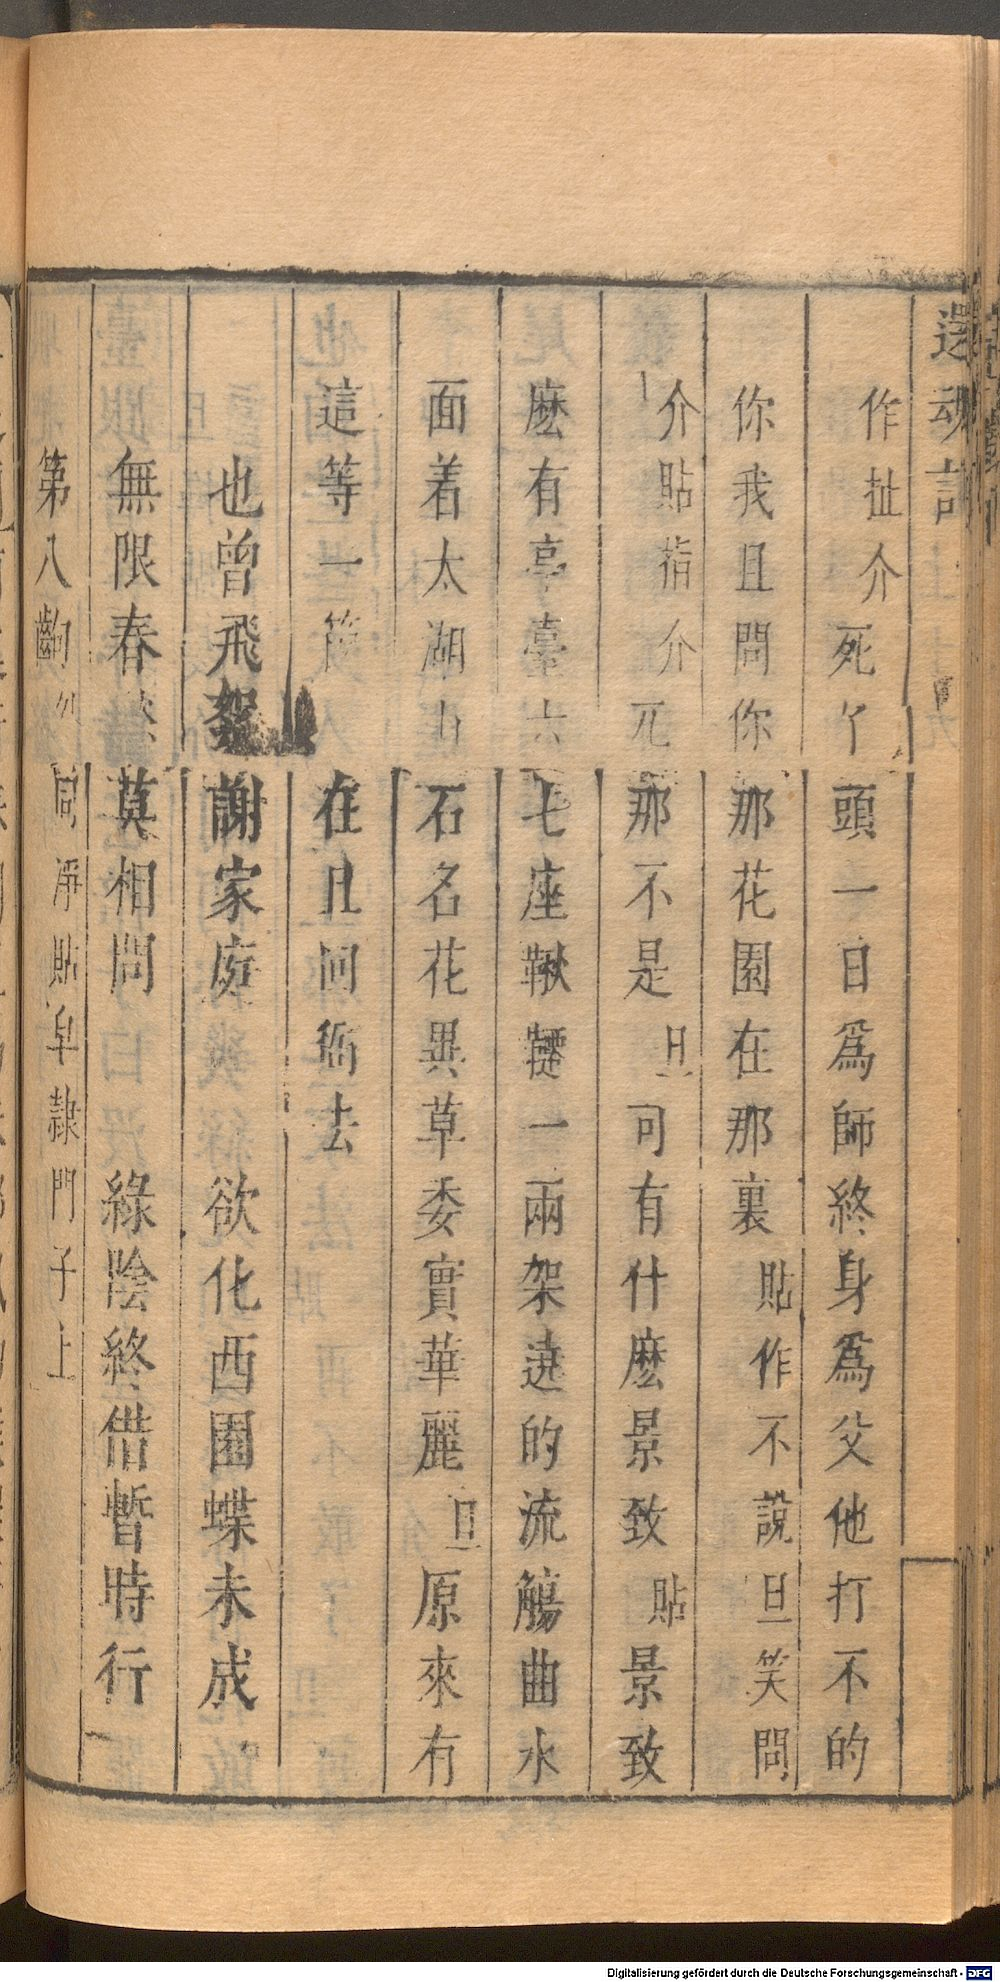 還魂記
作扯介死了頭一日為師終身為父他打不的
你我且問你那花園在那裏貼作不說旦笑問
介貼指介兀那不是旦可有什麽景致貼景致
麽有亭臺六七座鞦韆一兩架遶的流觴曲水
面着太湖山石名花異草委實華麗旦原來有
這等一箇在且回衙去
也曾飛絮謝家庭 欲化西園蝶未成
無限春 莫相問 綠陰終借暫時行
第八齣 淨貼皁隸門子上
Digitalisierung gefördert durch die Deutsche Forschungsgemeinschaft - DFG